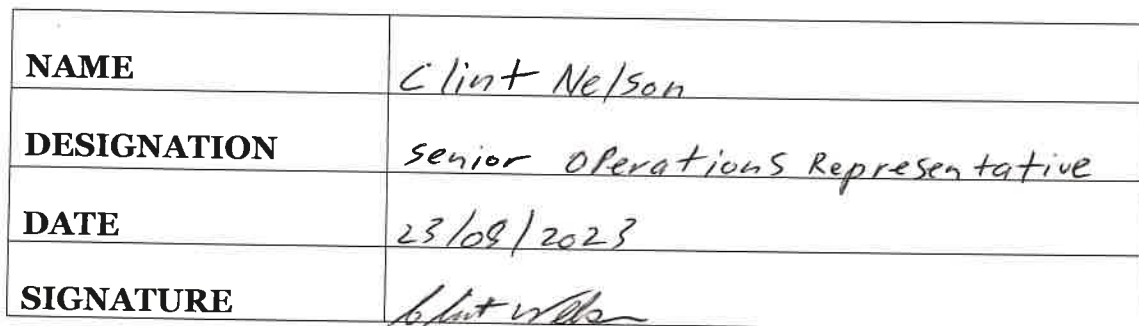 NAME Clint Nelson
DESIGNATION senior Operations Representative
DATE 23/08/2023
SIGNATURE